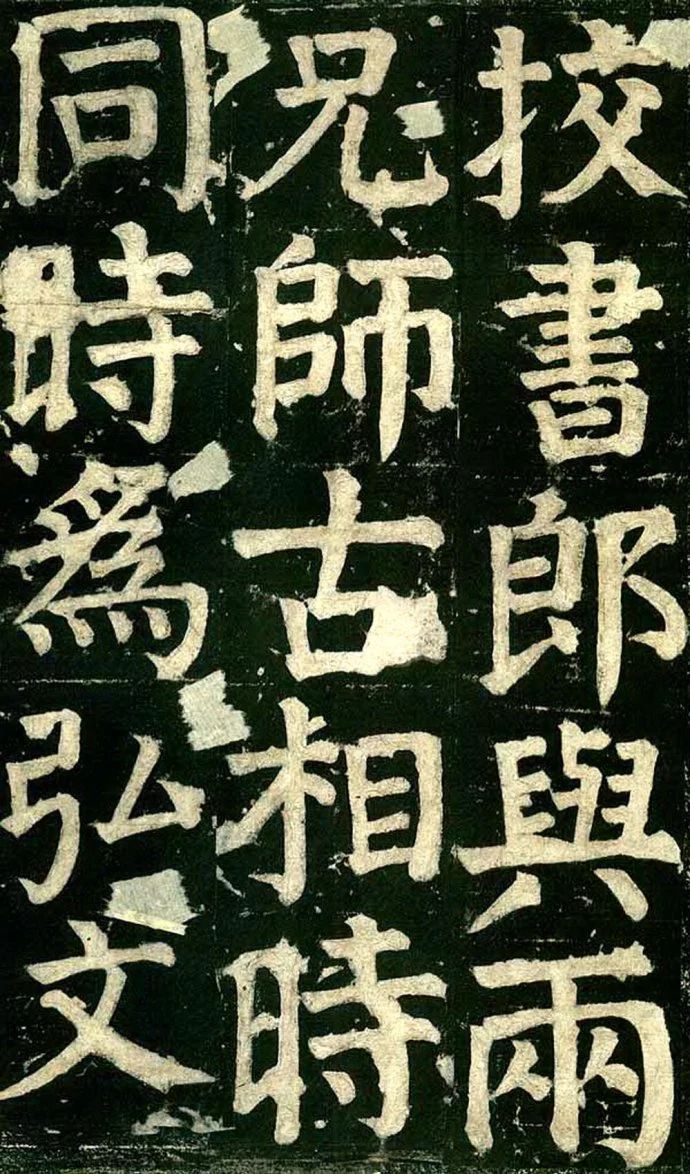 挍書郎與兩
兄師古相時
同時為弘文